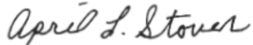 April L. Stover